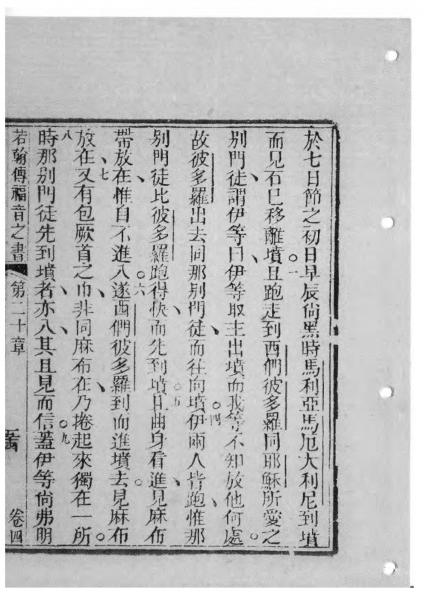 於七日節之初日早辰尙黑時馬利亞馬厄大利尼到墳
而見石已移離墳且跑走到西們彼多羅同耶穌所愛之
別門徒謂伊等曰伊等取主出墳而我等不知放他何處
故彼多羅出去同那別門徒而往向墳伊兩人皆跑惟那
別門徒比彼多羅跑得快而先到墳且曲身看進見麻布
帶放在惟自不進入遂西們彼多羅到而進墳去見麻布
放在又有包厥首之巾非同麻布在乃捲起來獨在一所
時那別門徒先到墳者亦入其且見而信蓋伊等尙弗明
若翰傳福音之書 第二十章 卷四
一
四
五
六
七
八
九